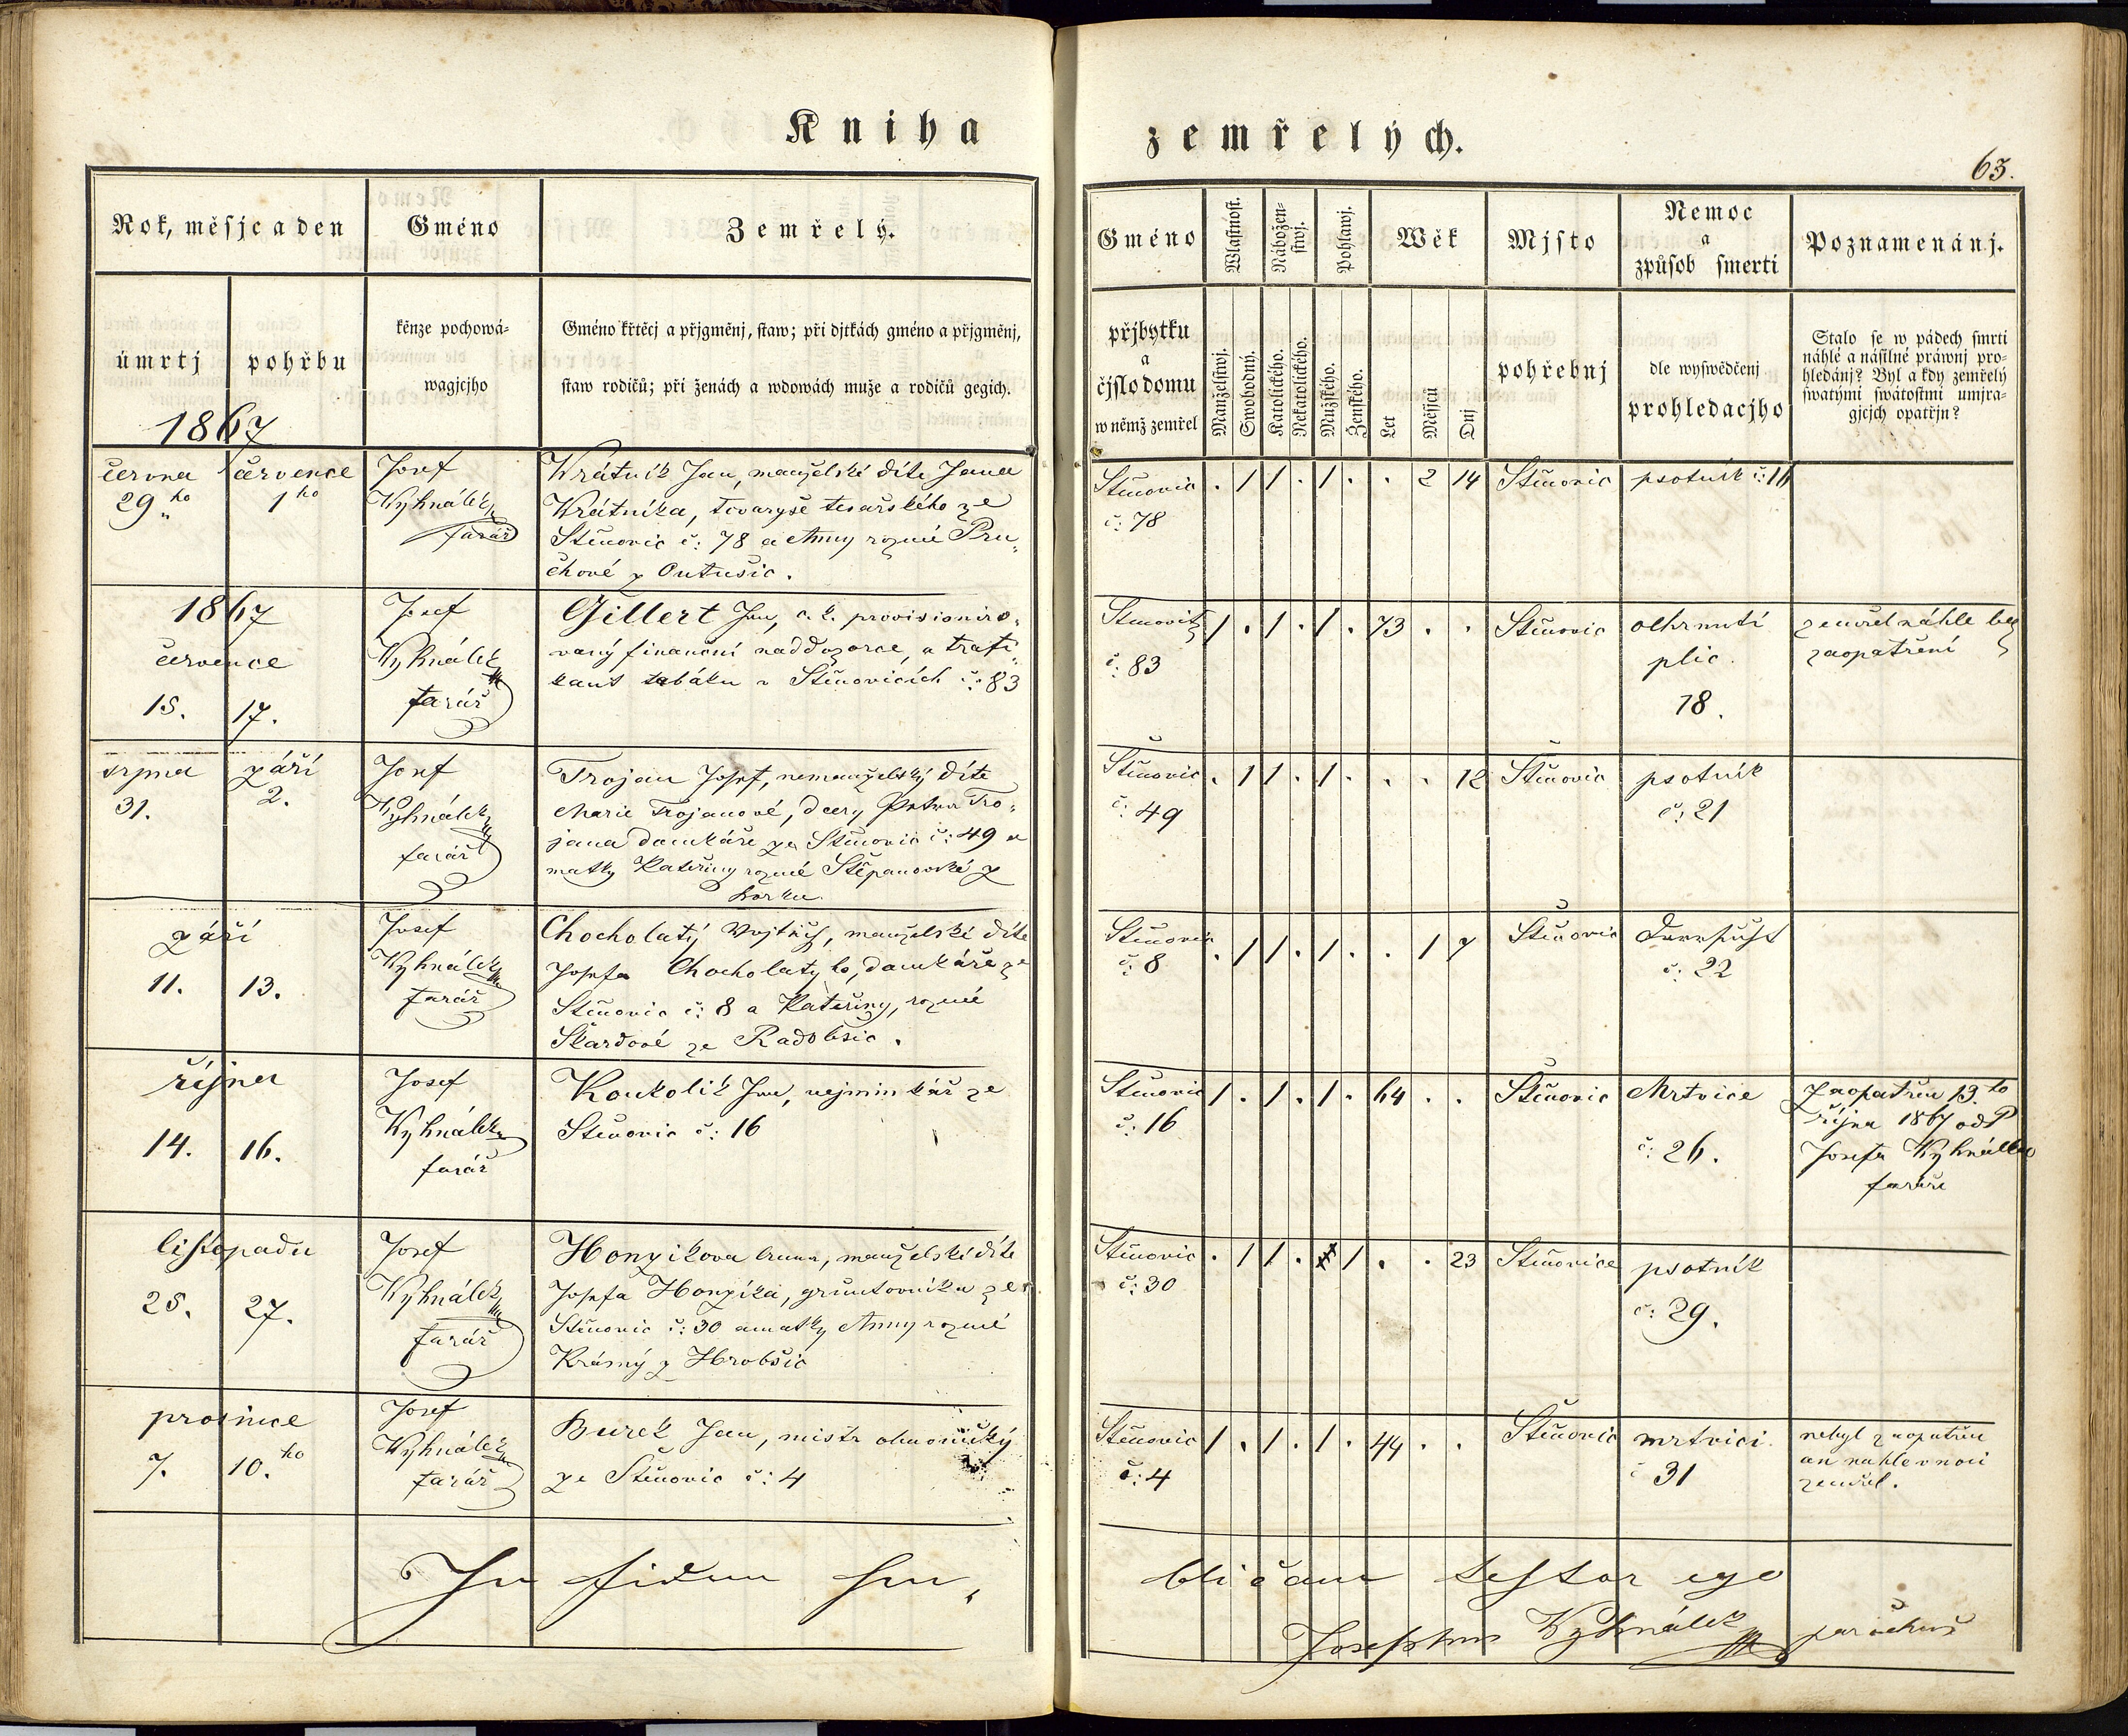 Kniha zemřelých.
63.
Rok, měsjc a den
Gméno
Zemřelý.
úmrtj
pohřbu
kěnze pochowá-
wagjcjho
Gméno křtěcj a přjgměnj, staw; při djtkách gméno a přjgměnj,
staw rodičů; při ženách a wdowách muže a rodičů gegich.
Gméno
přjbytku
a
čjslo domu
w němž zemřel
Wlastnost.
Manželstwj.
Swobodný.
Nábožen-
stwj.
Katolického.
Nekatolického.
Pohlawj.
Mužského.
Ženského.
Wěk
Let
Měsjců
Dnj
Mjsto
pohřebnj
Nemoc
a
způsob smerti
dle wyswědčenj
prohledacjho
Poznamenánj.
Stalo se w pádech smrti
náhlé a násilné práwnj pro-
hledánj? Byl a kdy zemřelý
swatými swátostmi umjra-
gjcjch opatřjn?
1867
června července
29ho 1ho
Josef
Kyhnálek
farář
Krátník Jan, manželské díte Jana
Krátníka, tovaryše tesařského ze
Stěnovic č: 78 a Anny rozené Pru„
chové z Outušic.
Stěnovic
č: 78
. 1 1 . 1 . . 2 14
Stěnovic
psotník č: 16
1867
července
15. 17.
Josef
Kyhnálek
farář
Gillert Jan, c. k. provisioniro„
vaný finanční naddozorce, a trafi„
kant tabáku v Stěnovicích č: 83
č: 83
1 . 1 . 1 . 73 . .
Stěnovic
ochrnutí
plic.
18.
zemřel náhle bez
zaopatření
srpna září
31. 2.
Josef
Kyhnálek
farář
Trojan Josef, nemanželský díte
Marie Trojanové, dcery Petra Tro„
jana domkáře ze Stěnovic č: 49 a
matky Kateřiny rozené Štěpanovské z
Borku
Stěnovic
č: 49
. 1 1 . 1 . . . 12
Stěnovic
psotník
č: 21
září
11. 13.
Josef
Kyhnálek
farář
Chocholatý Vojtěch, manželské díte
Josefa Chocholatýho, domkáře ze
Stěnovic č: 8 a Kateřiny, rozené
Škardové ze Radobšic.
Stěnovic
č: 8
. 1 1 . 1 . . 1 7
Stěnovic
č: 22
října
14. 16.
Josef
Kyhnálek
farář
Koukolík Jan, vejminkář ze
Stěnovic č: 16
Stěnovic
č: 16
1 . 1 . 1 . 64 . .
Stěnovic
Mrtvice
č: 26.
Zaopatřen 13.to
října 1867 od P
Josefa Kyhnálka
faráře
listopadu
25. 27.
Josef
Kyhnálek
farář
Honzikova Anna, manželské díte
Josefa Honzíka, gruntovníka ze
Stěnovic č: 30 a matky Anny rozené
Krásný z Hrobšic
Stěnovic
č: 30
. 1 1 . 1 . . 23
Stěnovice
psotník
č: 29.
prosince
7. 10.ho
Josef
Kyhnálek
farář
Burek Jan, mistr
ze Stěnovic č: 4
Stěnovic
č: 4
1 . 1 . 1 . 44 . .
Stěnovic
mrtvici.
č 31
nebyl zaopatřen
an nahle v noci
zemřel.
In fidem pu„ blicam testor ego
Josephus Kyhnálek parochus